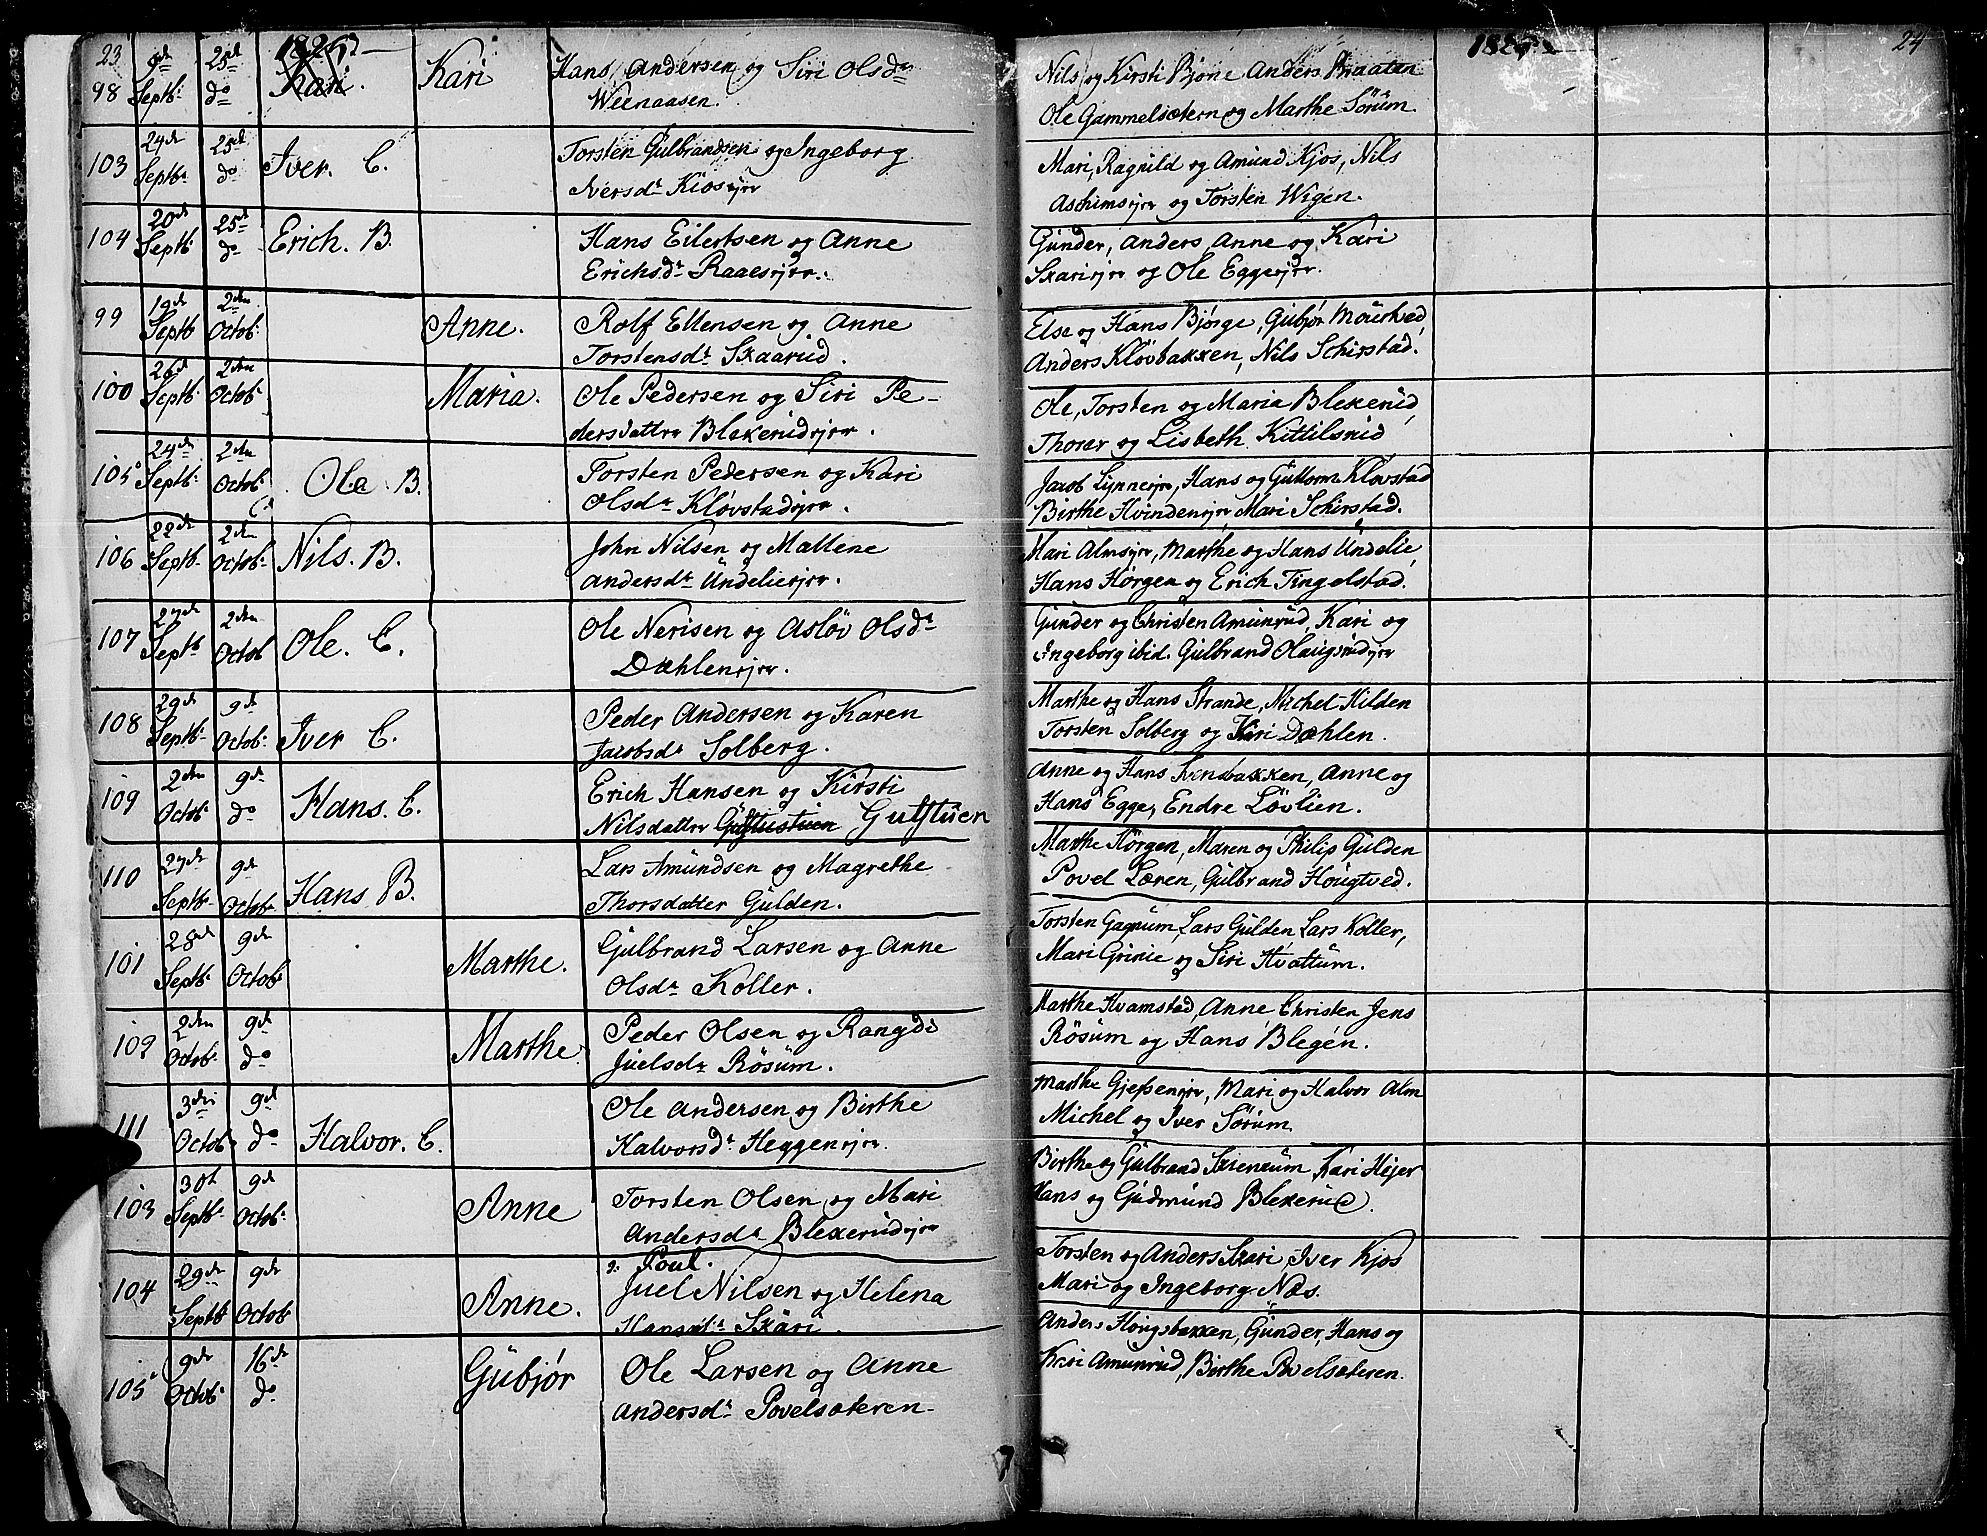 23 1825. 1825. 24
98 9de Septbr 25de do Kari. Kari Hans Andersen og Siri Olsdr
Weenaasen.
Nils og Kirsti Bjone Anders Braaten
Ole Gammelsætern og Marthe Sörum.
103 24de Septbr 25de do Iver. C. Torsten Gulbrandsen og Ingeborg
Iversdr Kiosejer
Mari, Ragnild og Amund Kjos, Nils
Aschimsejer og Torsten Wigen.
104 20de Septbr 25de do Erich. B. Hans Eilertsen og Anne
Erichsdr Raaesejer.
Gunder, Anders, Anne og Kari
Skariejer og Ole Eggeejer.
99 19de Septb 2den Octob: Anne. Rolf Ellensen og Anne
Torstensdr Skaarud.
Else og Hans Bjørge, Gubjør Mourtved
Anders Kløvbakken, Nils Schirstad.
100 26de Septb 2den Octob: Maria. Ole Pedersen og Siri Pe-
dersdatter Blekerudejer.
Ole, Torsten og Maria Blekerud,
Thorer og Lisbeth Kittilsrud
105 24de Septb: 2den Octob: Ole. B. Torsten Pedersen og Kari
Olsdr Kløvstadejer.
Jacob Lynneejer, Hans og Guttorm Kløvstad
Birthe Hvindenejer Mari Schirstad.
106 22de Septb: 2den Octob: Nils. B. John Nilsen og Mallene
Andersdr Undelieejer.
Mari Almsejer, Marthe og Hans Undelie,
Hans Hørgen og Erich Tingelstad.
107 27de Septb 2den Octob Ole. C. Ole Nerisen og Asløv Olsdr
Dæhlenejer.
Gunder og Christen Amunrud, Kari og
Ingeborg ibid. Gulbrand Olaugsrudejer
108 29de Septb: 9de Octob: Iver C. Peder Andersen og Karen
Jacobsdr Solberg.
Marthe og Hans Strande, Michel Hilden
Torsten Solberg og Kari Dæhlen.
109 2den Octob: 9de do Hans. C. Erich Hansen og Kirsti
Nilsdatter Gulstuen
Anne og Hans Svensbakken, Anne og
Hans Egge, Endre Løvlien.
110 27de Septb: 9de Octob: Hans B. Lars Amundsen og Magrethe
Thorsdatter Gulden.
Marthe Hørgen, Maren og Philip Gulden
Povel Læren, Gulbrand Hougtved.
101 28de Septb: 9de Octob: Marthe. Gulbrand Larsen og Anne
Olsdr Koller.
Torsten Gagnum, Lars Gulden Lars Koller,
Mari Grinie og Siri Hvattum.
102 2den Octob: 9de do Marthe. Peder Olsen og Rangdi
Juelsdr Røsum.
Marthe Hvamstad, Anne Christen Jens
Røsum og Hans Blegen.
111 3die Octob: 9de do Halvor. C. Ole Andersen og Birthe
Halvorsdr Heggenejer.
Marthe Gjefsenejer, Mari og Halvor Alm
Michel og Iver Sørum.
103 30t Septb: 9de Octob: Anne Torsten Olsen og Mari
Andersdr Blekerudejer
Birthe og Gulbrand Skienrum Kari Hejer
Hans og Gudmund Blekerud.
104 29de Septb 9de Octob: Anne. Poul.
Juel Nilsen og Helena
Hansdr Skari.
Torsten og Anders Skari, Iver Kjos
Mari og Ingeborg Næs.
105 9de Octob: 16de do Gubjør Ole Larsen og Anne
Andersdr Povelsæteren.
Anders Hougsbakken, Gunder, Hans og
Kari Amunrud, Birthe Povelsæteren.